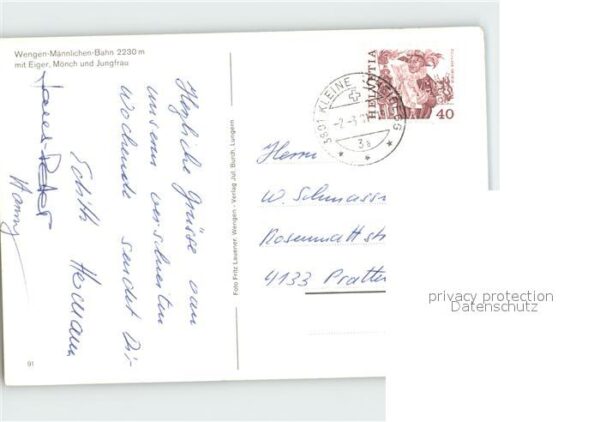 Wengen-Männlichen-Bahn 2230 m
mit Eiger, Mönch und Jungfrau
Herzliche Grüsse vom
unserm verschneiten
Wochende sendet Dir
Edith Hermann
Hanny
Foto Fritz Lauener, Wengen - Verlag Jul. Burch, Lungern
3801 KLEINE SCHEIDEGG
HELVETIA
40
Herrn
W. Schmassm
Rosenmattstr
4133 Pratteln
91
privacy protection
Datenschutz